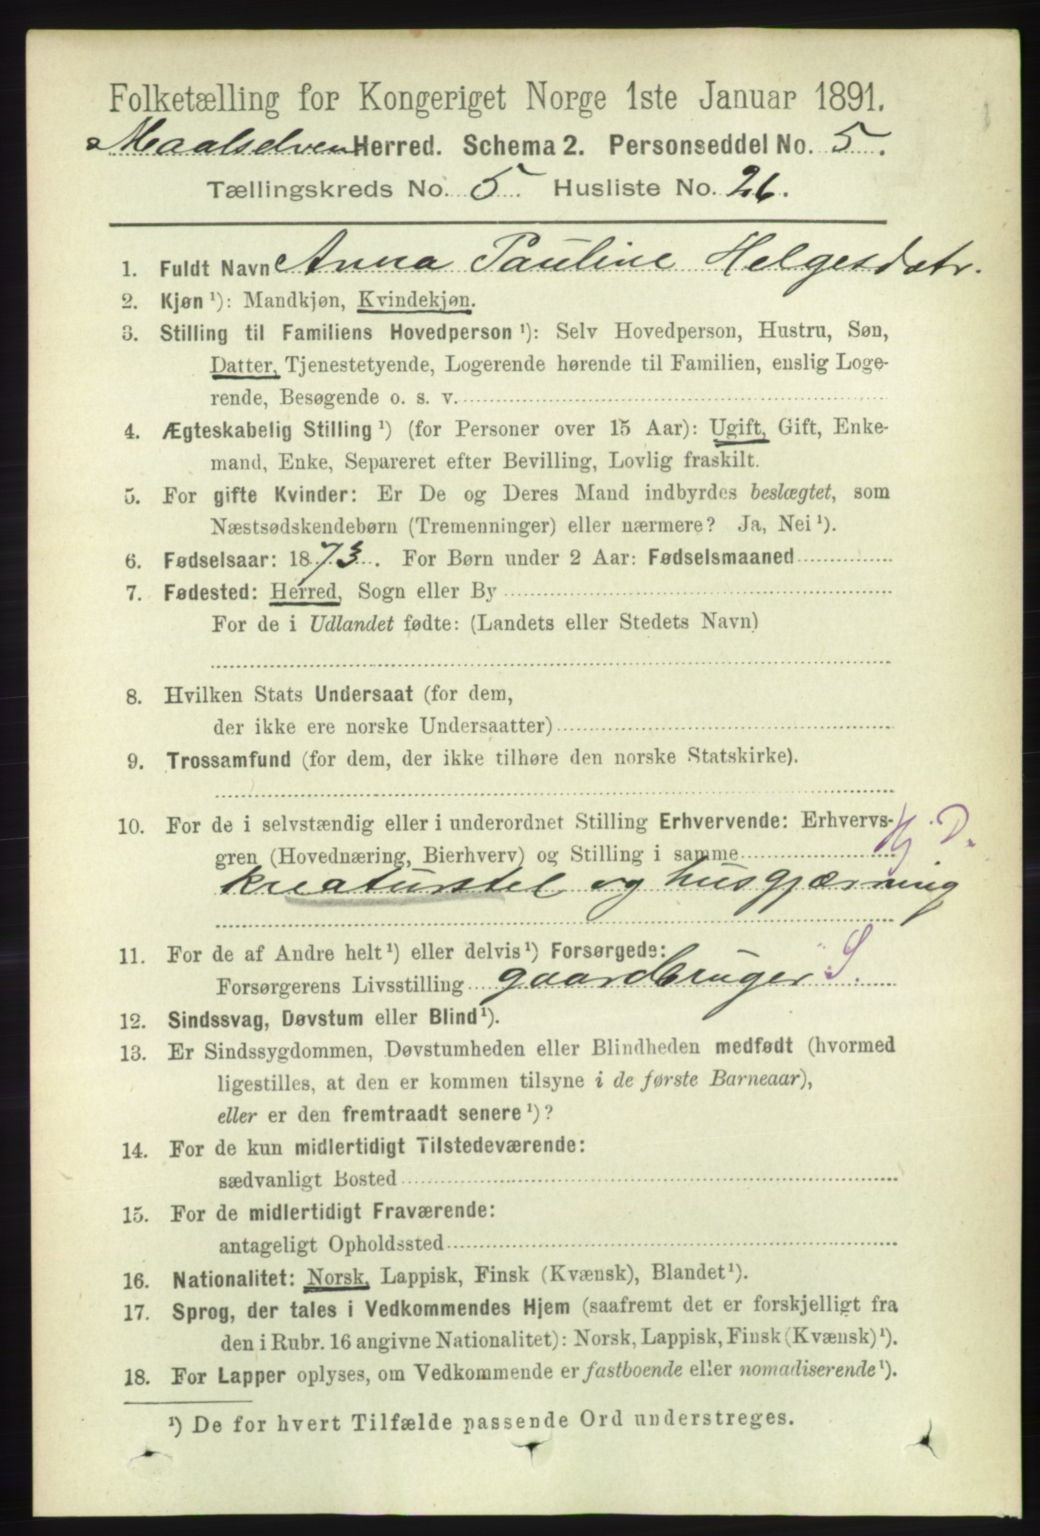 Folketælling for Kongeriget Norge 1ste Januar 1891.
Maalselven Herred. Schema 2. Personseddel No. 5.
Tællingskreds No. 5. Husliste No. 26.
1. Fuldt Navn Anna Pauline Helgesdatr.
2. Kjøn ¹): Mandkjøn, Kvindekjøn.
3. Stilling til Familiens Hovedperson ¹): Selv Hovedperson, Hustru, Søn,
Datter, Tjenestetyende, Logerende hørende til Familien, enslig Loge-
rende, Besøgende o. s. v.
4. Ægteskabelig Stilling ¹) (for Personer over 15 Aar): Ugift, Gift, Enke-
mand, Enke, Separeret efter Bevilling, Lovlig fraskilt.
5. For gifte Kvinder: Er De og Deres Mand indbyrdes beslægtet, som
Næstsødskendebørn (Tremenninger) eller nærmere? Ja, Nei ¹).
6. Fødselsaar: 1873. For Børn under 2 Aar: Fødselsmaaned
7. Fødested: Herred, Sogn eller By
For de i Udlandet fødte: (Landets eller Stedets Navn)
8. Hvilken Stats Undersaat (for dem,
der ikke ere norske Undersaatter)
9. Trossamfund (for dem, der ikke tilhøre den norske Statskirke).
10. For de i selvstændig eller i underordnet Stilling Erhvervende: Erhvervs-
gren (Hovednæring, Bierhverv) og Stilling i samme Hj. D.
kreaturstel og husgjærning
11. For de af Andre helt ¹) eller delvis ¹) Forsørgede:
Forsørgerens Livsstilling gaardbruger S.
12. Sindssvag, Døvstum eller Blind ¹).
13. Er Sindssygdommen, Døvstumheden eller Blindheden medfødt (hvormed
ligestilles, at den er kommen tilsyne i de første Barneaar),
eller er den fremtraadt senere ¹)?
14. For de kun midlertidigt Tilstedeværende:
sædvanligt Bosted
15. For de midlertidigt Fraværende:
antageligt Opholdssted
16. Nationalitet: Norsk, Lappisk, Finsk (Kvænsk), Blandet ¹).
17. Sprog, der tales i Vedkommendes Hjem (saafremt det er forskjelligt fra
den i Rubr. 16 angivne Nationalitet): Norsk, Lappisk, Finsk (Kvænsk) ¹).
18. For Lapper oplyses, om Vedkommende er fastboende eller nomadiserende ¹).
¹) De for hvert Tilfælde passende Ord understreges.